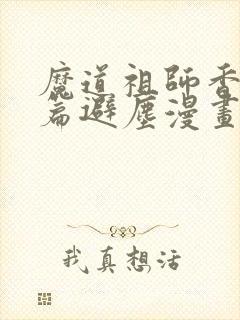 魔道祖師香
篇避塵漫畫
我真想活